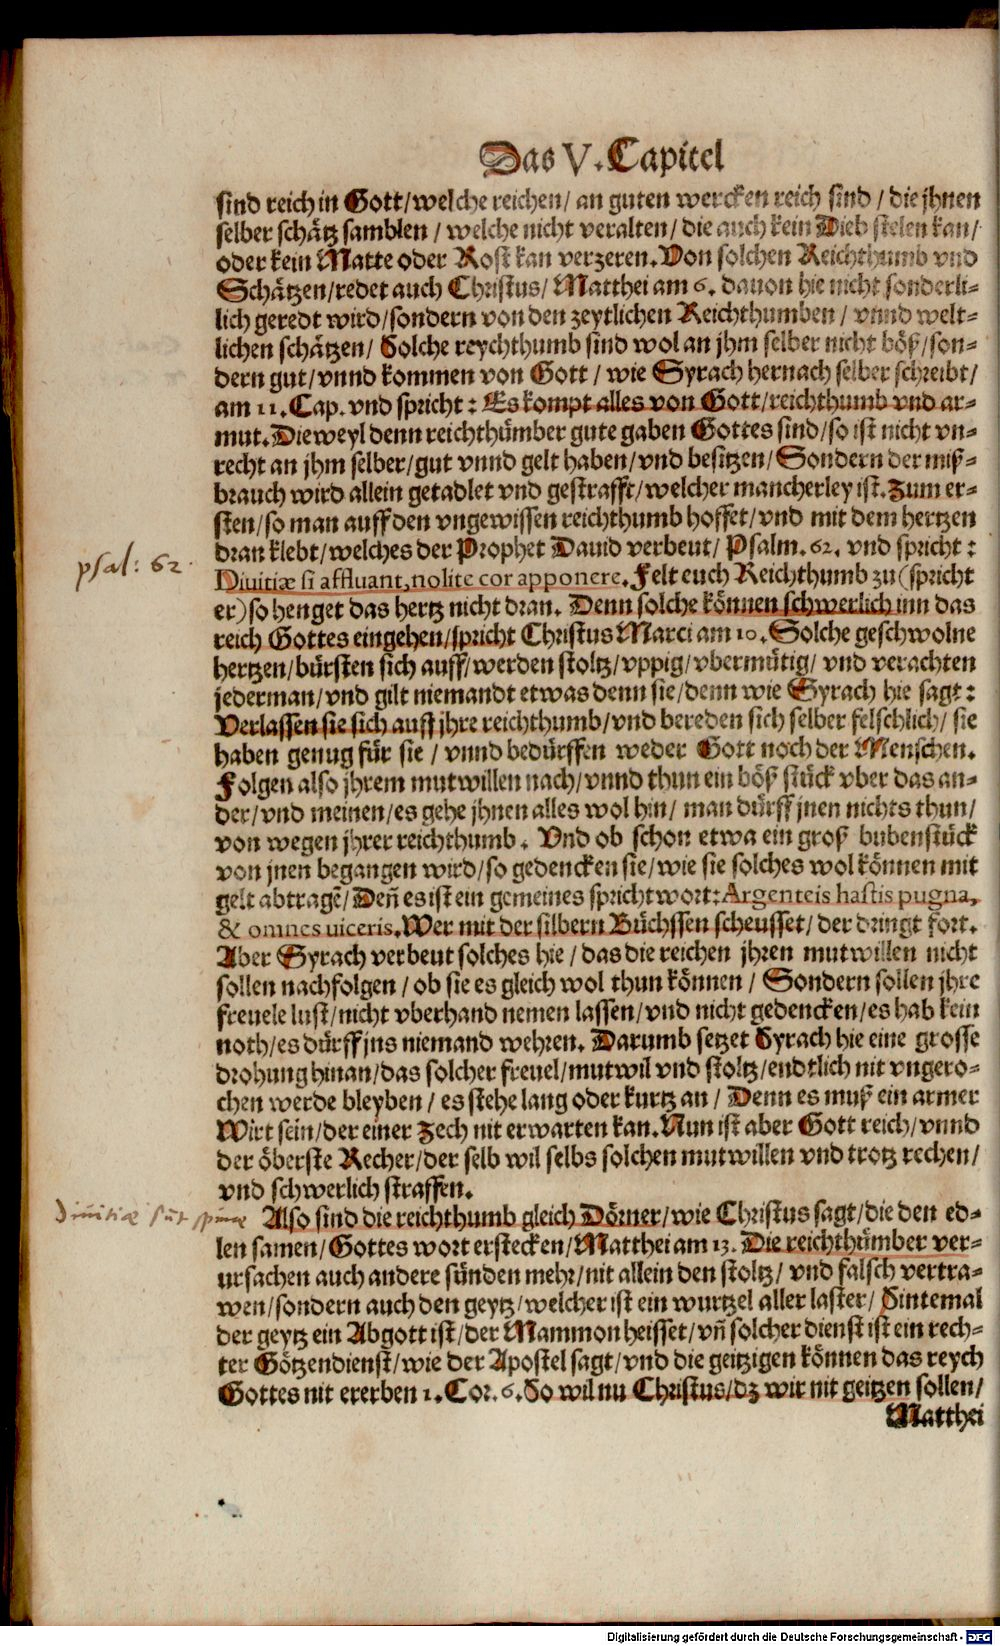 Das V. Capitel
sind reich in Gott/welche reichen/ an guten wercken reich sind / die jhnen
selber schätz samblen / welche nicht veralten/ die auch kein Dieb stelen kan/
oder kein Matte oder Rost kan verzeren. Von solchen Reichthumb vnd
Schätzen/redet auch Christus/ Matthei am 6. dauon hie nicht sonderli-
lich geredt wird/sondern von den zeytlichen Reichthumben / vnnd welt-
lichen schätzen/ Solche reychthumb sind wol an jhm selber nicht böß/son-
dern gut/vnnd kommen von Gott / wie Syrach hernach selber schreibt/
am 11. Cap. vnd spricht: Es kompt alles von Gott/reichthumb vnd ar-
mut. Dieweyl denn reichthümber gute gaben Gottes sind/so ist nicht vn-
recht an jhm selber/gut vnnd gelt haben/vnd besitzen/ Sondern der miß-
brauch wird allein getadlet vnd gestrafft/welcher mancherley ist. Zum er-
sten/so man auff den vngewissen reichthumb hoffet/vnd mit dem hertzen
dran klebt/welches der Prophet Dauid verbeut/ Psalm. 62. vnd spricht:
psal: 62.
Diuitiæ si affluant, nolite cor apponere. Felt euch Reichthumb zu (spricht
er) so henget das hertz nicht dran. Denn solche können schwerlich inn das
reich Gottes eingehen/spricht Christus Marci am 10. Solche geschwolne
hertzen/bürsten sich auff/werden stoltz/vppig/vbermütig/ vnd verachten
jederman/vnd gilt niemandt etwas denn sie/denn wie Syrach hie sagt:
Verlassen sie sich auff jhre reichthumb/vnd bereden sich selber felschlich/ sie
haben genug für sie / vnnd bedürffen weder Gott noch der Menschen.
Folgen also jhrem mutwillen nach/vnnd thun ein böß stück vber das an-
der/vnd meinen/es gehe jhnen alles wol hin/ man dürff jnen nichts thun/
von wegen jhrer reichthumb. Vnd ob schon etwa ein groß bubenstück
von jnen begangen wird/so gedencken sie/wie sie solches wol können mit
gelt abtragẽ/Deñ es ist ein gemeines sprichtwort: Argenteis hastis pugna,
& omnes uiceris. Wer mit der silbern Büchssen scheusset/ der dringt fort.
Aber Syrach verbeut solches hie / das die reichen jhren mutwillen nicht
sollen nachfolgen / ob sie es gleich wol thun können / Sondern sollen jhre
freuele lust/nicht vberhand nemen lassen/vnd nicht gedencken/es hab kein
noth/es dürff jns niemand wehren. Darumb setzet Syrach hie eine grosse
drohung hinan/das solcher freuel/mutwil vnd stoltz/endtlich nit vngero-
chen werde bleyben / es stehe lang oder kurtz an / Denn es muß ein armer
Wirt sein/der einer Zech nit erwarten kan. Nun ist aber Gott reich/vnnd
der öberste Recher/der selb wil selbs solchen mutwillen vnd trotz rechen/
vnd schwerlich straffen.
Diuitiæ sũt spinæ
Also sind die reichthumb gleich Dörner/wie Christus sagt/die den ed-
len samen/Gottes wort erstecken/Matthei am 13. Die reichthümber ver-
ursachen auch andere sünden mehr/nit allein den stoltz/ vnd falsch vertra-
wen/sondern auch den geytz/welcher ist ein wurtzel aller laster/ Sintemal
der geytz ein Abgott ist/der Mammon heisset/vñ solcher dienst ist ein rech-
ter Götzendienst/wie der Apostel sagt/vnd die geitzigen können das reych
Gottes nit ererben 1. Cor. 6. So wil nu Christus/dz wir nit geitzen sollen/
Matthei
Digitalisierung gefördert durch die Deutsche Forschungsgemeinschaft - DFG